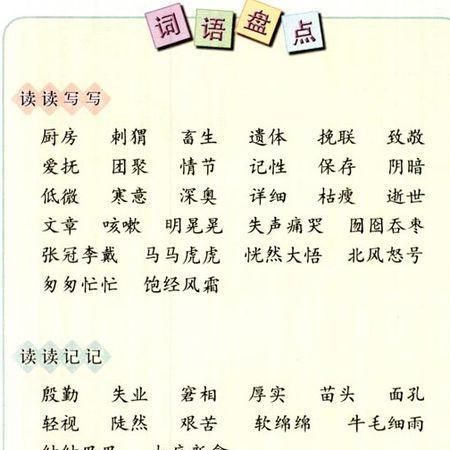 词语盘点
读读写写
厨房 刺猬 畜生 遗体 挽联 致敬
爱抚 团聚 情节 记性 保存 阴暗
低微 寒意 深奥 详细 枯瘦 逝世
文章 咳嗽 明晃晃 失声痛哭 囫囵吞枣
张冠李戴 马马虎虎 恍然大悟 北风怒号
匆匆忙忙 饱经风霜
读读记记
殷勤 失业 窘相 厚实 苗头 面孔
轻视 陡然 艰苦 软绵绵 牛毛细雨